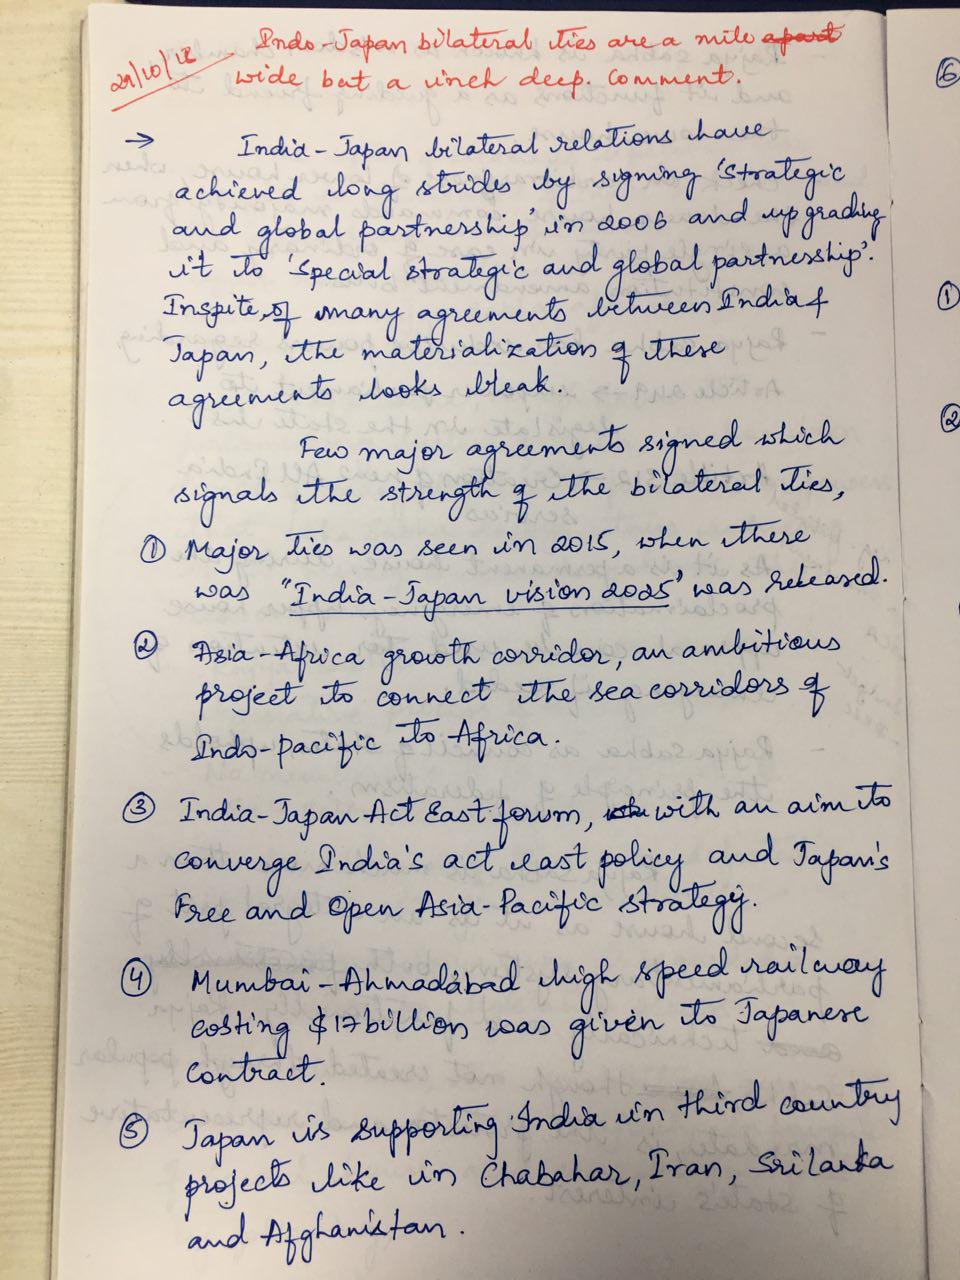 29/10/18
Indo-Japan bilateral ties are a mile apart
wide but a inch deep. Comment.
→ India-Japan bilateral relations have
achieved long strides by signing 'strategic
and global partnership' in 2006 and upgrading
it to 'special strategic and global partnership'.
Inspite, of many agreements between India &
Japan, the materialization of these
agreements looks bleak.
Few major agreements signed which
signals the strength of the bilateral ties,
① Major ties was seen in 2015, when there
was "India-Japan vision 2025" was released.
② Asia-Africa growth corridor, an ambitious
project to connect the sea corridors of
Indo-pacific to Africa.
③ India-Japan Act East forum, with an aim to
converge India's act east policy and Japan's
Free and Open Asia-Pacific strategy.
④ Mumbai-Ahmadabad high speed railway
costing $17 billion was given to Japanese
contract.
⑤ Japan is supporting India in third country
projects like in Chabahar, Iran, Srilanka
and Afghanistan.
⑥
①
②